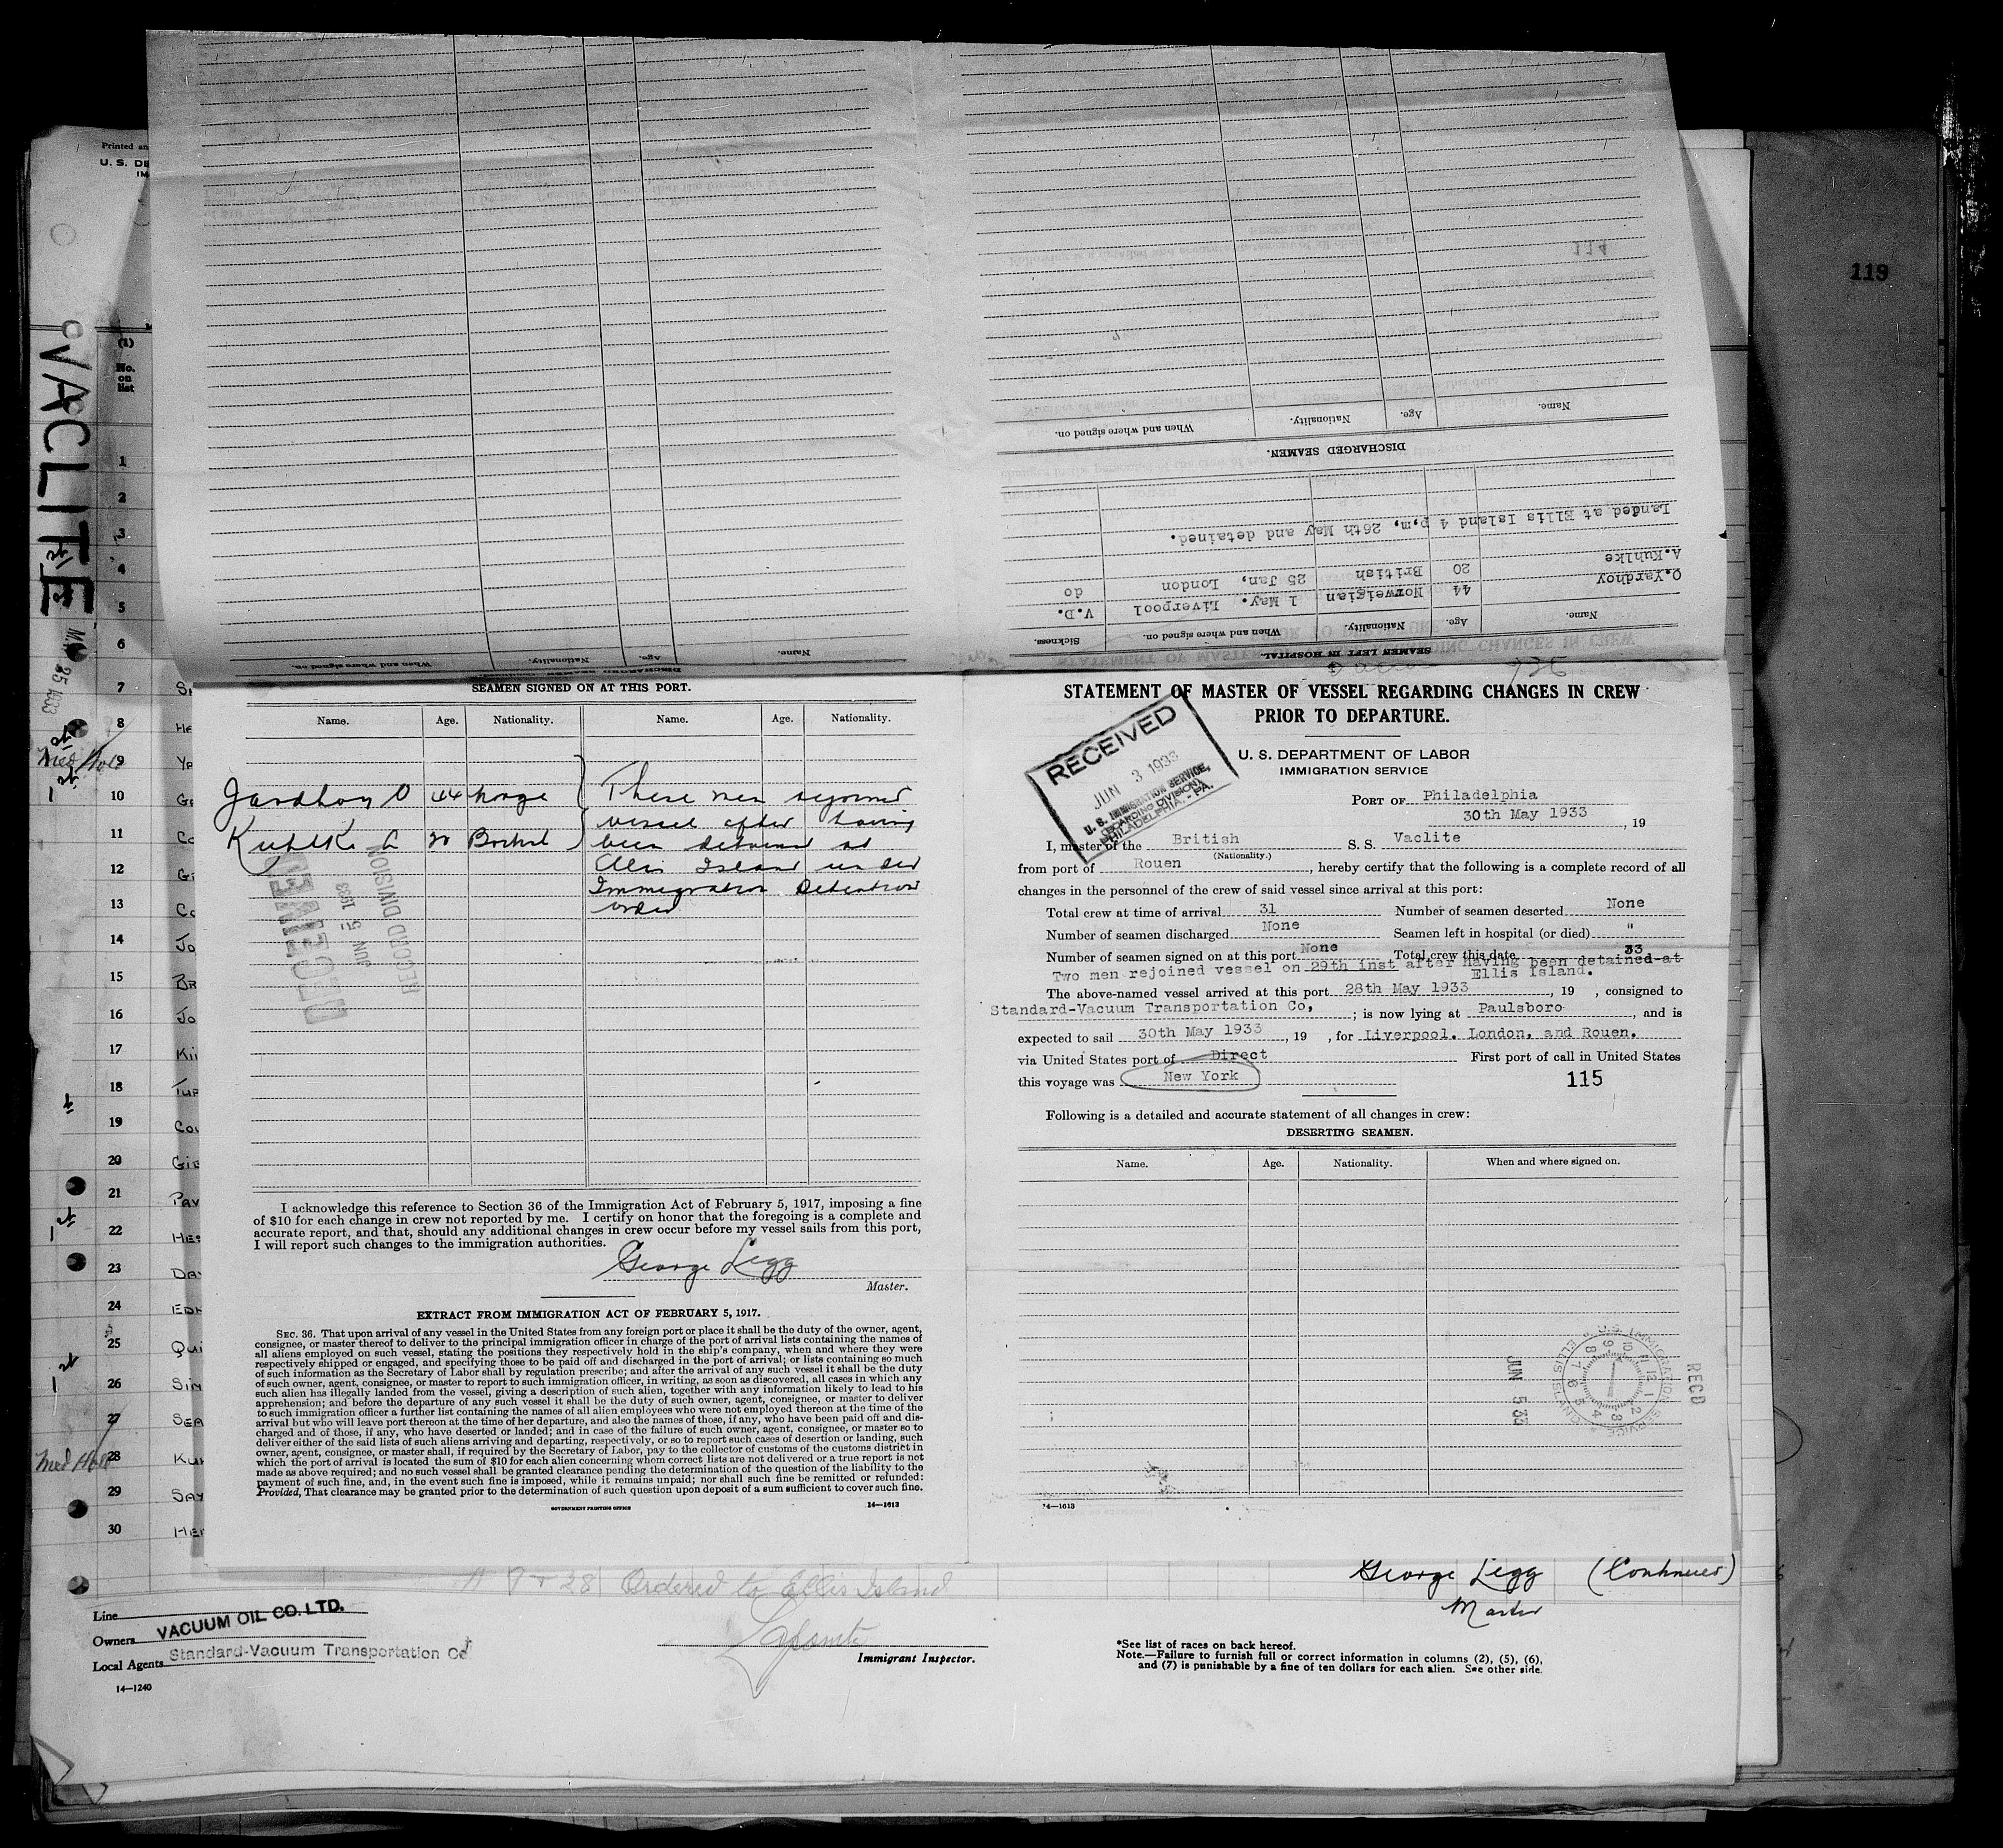 119
Printed an
U. S. DE
IM
VACLITE
(1)
No.
on
list
1
2
3
4
5
6
7
8
9
10
11
12
13
14
15
16
17
18
19
20
21
22
23
24
25
26
27
28
29
30
Med Hold
Med Hold
When and where signed on.
Nationality.
Age.
Name.
DISCHARGED SEAMEN.
SEAMEN LEFT IN HOSPITAL
Name. Age. Nationality. When and where signed on. Sickness.
O.Yardhoy 44 Norweigian 1 May. Liverpool V.D.
A.Kuhlke 20 British 25 Jan, London do
Landed at Ellis Island 4 p,m, 26th May and detained.
DISCHARGED SEAMEN.
Name. Age. Nationality. When and where signed on.
114
SEAMEN SIGNED ON AT THIS PORT.
Name. Age. Nationality. Name. Age. Nationality.
Jardhoy O 44 Norge
Kuhlke A 20 British
These men rejoined
vessel after having
been detained at
Ellis Island under
Immigration Detention
order
RECEIVED
JUN 5 1933
RECORD DIVISION
I acknowledge this reference to Section 36 of the Immigration Act of February 5, 1917, imposing a fine
of $10 for each change in crew not reported by me. I certify on honor that the foregoing is a complete and
accurate report, and that, should any additional changes in crew occur before my vessel sails from this port,
I will report such changes to the immigration authorities.
George Legg
Master.
EXTRACT FROM IMMIGRATION ACT OF FEBRUARY 5, 1917.
SEC. 36. That upon arrival of any vessel in the United States from any foreign port or place it shall be the duty of the owner, agent,
consignee, or master thereof to deliver to the principal immigration officer in charge of the port of arrival lists containing the names of
all aliens employed on such vessel, stating the positions they respectively hold in the ship's company, when and where they were
respectively shipped or engaged, and specifying those to be paid off and discharged in the port of arrival; or lists containing so much
of such information as the Secretary of Labor shall by regulation prescribe; and after the arrival of any such vessel it shall be the duty
of such owner, agent, consignee, or master to report to such immigration officer, in writing, as soon as discovered, all cases in which any
such alien has illegally landed from the vessel, giving a description of such alien, together with any information likely to lead to his
apprehension; and before the departure of any such vessel it shall be the duty of such owner, agent, consignee, or master to deliver
to such immigration officer a further list containing the names of all alien employees who were not employed thereon at the time of the
arrival but who will leave port thereon at the time of her departure, and also the names of those, if any, who have been paid off and dis-
charged and of those, if any, who have deserted or landed; and in case of the failure of such owner, agent, consignee, or master so to
deliver either of the said lists of such aliens arriving and departing, respectively, or so to report such cases of desertion or landing, such
owner, agent, consignee, or master shall, if required by the Secretary of Labor, pay to the collector of customs of the customs district in
which the port of arrival is located the sum of $10 for each alien concerning whom correct lists are not delivered or a true report is not
made as above required; and no such vessel shall be granted clearance pending the determination of the question of the liability to the
payment of such fine, and, in the event such fine is imposed, while it remains unpaid; nor shall such fine be remitted or refunded:
Provided, That clearance may be granted prior to the determination of such question upon deposit of a sum sufficient to cover such fine.
GOVERNMENT PRINTING OFFICE 14—1613
STATEMENT OF MASTER OF VESSEL REGARDING CHANGES IN CREW
PRIOR TO DEPARTURE.
U. S. DEPARTMENT OF LABOR
IMMIGRATION SERVICE
RECEIVED
JUN 3 1933
U. S. IMMIGRATION SERVICE,
(BOARDING DIVISION)
PHILADELPHIA, - PA.
PORT OF Philadelphia
30th May 1933, 19
I, master of the British S. S. Vaclite
(Nationality.)
from port of Rouen, hereby certify that the following is a complete record of all
changes in the personnel of the crew of said vessel since arrival at this port:
Total crew at time of arrival 31 Number of seamen deserted None
Number of seamen discharged None Seamen left in hospital (or died) "
Number of seamen signed on at this port None Total crew this date 33
Two men rejoined vessel on 29th inst after having been detained at
Ellis Island.
The above-named vessel arrived at this port 28th May 1933, 19 , consigned to
Standard-Vacuum Transportation Co, ; is now lying at Paulsboro, and is
expected to sail 30th May 1933, 19 , for Liverpool. London, and Rouen.
via United States port of Direct First port of call in United States
this voyage was New York
115
Following is a detailed and accurate statement of all changes in crew:
DESERTING SEAMEN.
Name. Age. Nationality. When and where signed on.
JUN 5 33
RECD
U. S. IMMIGRATION SERVICE ELLIS ISLAND
14—1613
# 9 + 28 Ordered to Ellis Island
George Legg (Continued)
Master
Line
Owners VACUUM OIL CO. LTD.
Local Agents Standard-Vacuum Transportation Co
14—1240
Immigrant Inspector.
*See list of races on back hereof.
Note.—Failure to furnish full or correct information in columns (2), (5), (6),
and (7) is punishable by a fine of ten dollars for each alien. See other side.